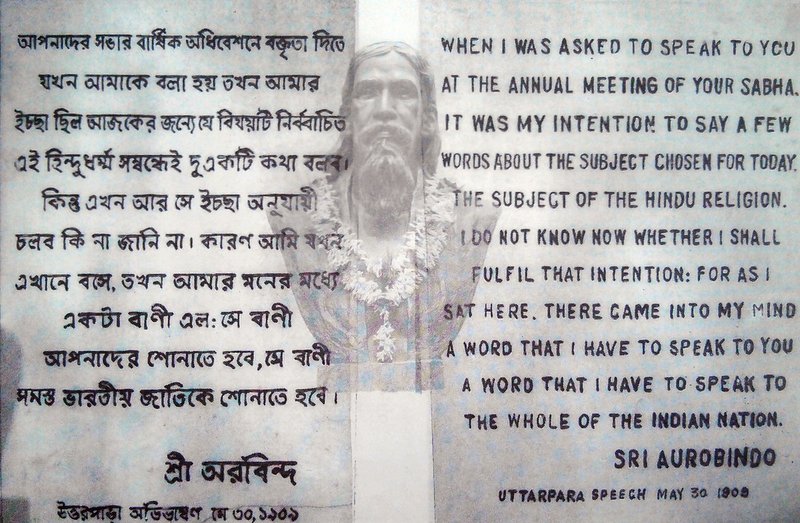 আপনাদের সভার বার্ষিক অধিবেশনে বক্তৃতা দিতে
যখন আমাকে বলা হয় তখন আমার
ইচ্ছা ছিল আজকের জন্যে যে বিষয়টি নির্ব্বাচিত
এই হিন্দুধর্ম্ম সম্বন্ধেই দুএকটি কথা বলব।
কিন্তু এখন আর সে ইচ্ছা অনুযায়ী
চলব কি না জানি না। কারণ আমি যখন
এখানে বসে, তখন আমার মনের মধ্যে
একটা বাণী এল: সে বাণী
আপনাদের শোনাতে হবে, সে বাণী
সমস্ত ভারতীয় জাতিকে শোনাতে হবে।
শ্রী অরবিন্দ
উত্তরপাড়া অভিভাষণ মে ৩০, ১৯০৯
WHEN I WAS ASKED TO SPEAK TO YOU
AT THE ANNUAL MEETING OF YOUR SABHA.
IT WAS MY INTENTION TO SAY A FEW
WORDS ABOUT THE SUBJECT CHOSEN FOR TODAY.
THE SUBJECT OF THE HINDU RELIGION.
I DO NOT KNOW NOW WHETHER I SHALL
FULFIL THAT INTENTION: FOR AS I
SAT HERE. THERE CAME INTO MY MIND
A WORD THAT I HAVE TO SPEAK TO YOU
A WORD THAT I HAVE TO SPEAK TO
THE WHOLE OF THE INDIAN NATION.
SRI AUROBINDO
UTTARPARA SPEECH MAY 30 1909